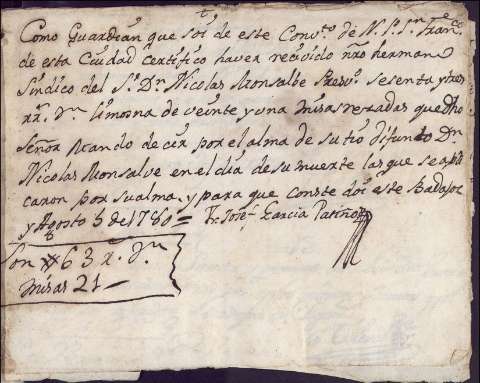 Como Guardian que soi de este Convto de N. P. Sn Franco
de esta Ciudad certifico haver recivido nro hermano
Sindico del Sr Dn Nicolas Monsalbe Presvo sesenta y tres
rrs vn limosna de veinte y una misas rezadas que dho
Señor Mando decir por el alma de su tio difunto Dn
Nicolas Monsalve en el dia de su muerte las que se apli
caron por su alma, y para que conste doi este Badajoz
y Agosto 5 de 1780=
Fr Josef Garcia Patiño
Son 63 r. vn
Misas 21—